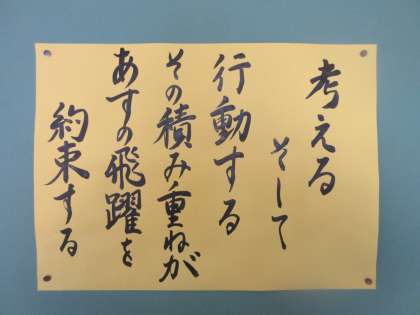 考える
そして
行動する
その積み重ねが
あすの飛躍を
約束する